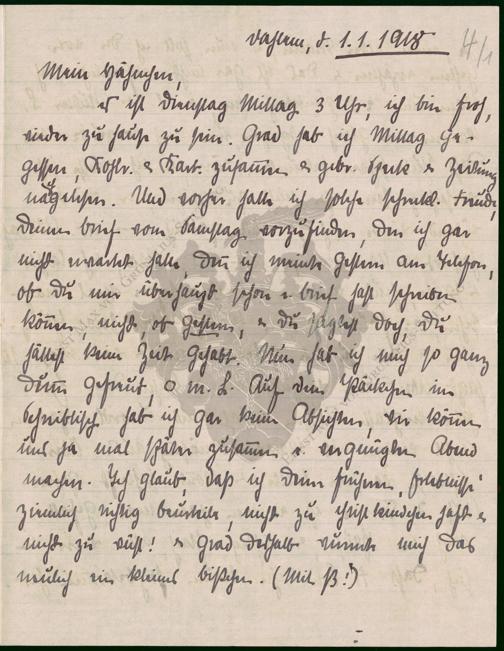 Dahlem, d. 1.1.1918
4/1
Mein Hähnchen,
es ist Dienstag Mittag 3 Uhr, ich bin froh,
wieder zu hause zu sein. Grad hab ich Mittag ge-
gessen, Kohlr. & Kart. zusammen & gebr. Speck & Zeitung
nachgelesen. Und vorher hatte ich solche schreckl. Freude
Deinen brief vom Samstag vorzufinden, den ich gar
nicht erwartet hatte, denn ich meinte gestern am Telefon,
ob Du mir überhaupt schon e brief hast schreiben
können, nicht, ob gestern, & Du sagtest doch, Du
hättest keine Zeit gehabt. Nun hab ich mich so ganz
dumm gefreut, o m. L. Auf den Päckchen im
Schreibtisch hab ich gar keine Absichten, wir können
uns ja mal später zusammen e. vergnügten Abend
machen. Ich glaub, daß ich Deine frühern "Erlebnisse"
ziemlich richtig beurteile, nicht zu christkindchenhaft &
nicht zu wüst! & Grad deshalb wurmte mich das
neulich ein kleines bißchen. (Mit ß!)